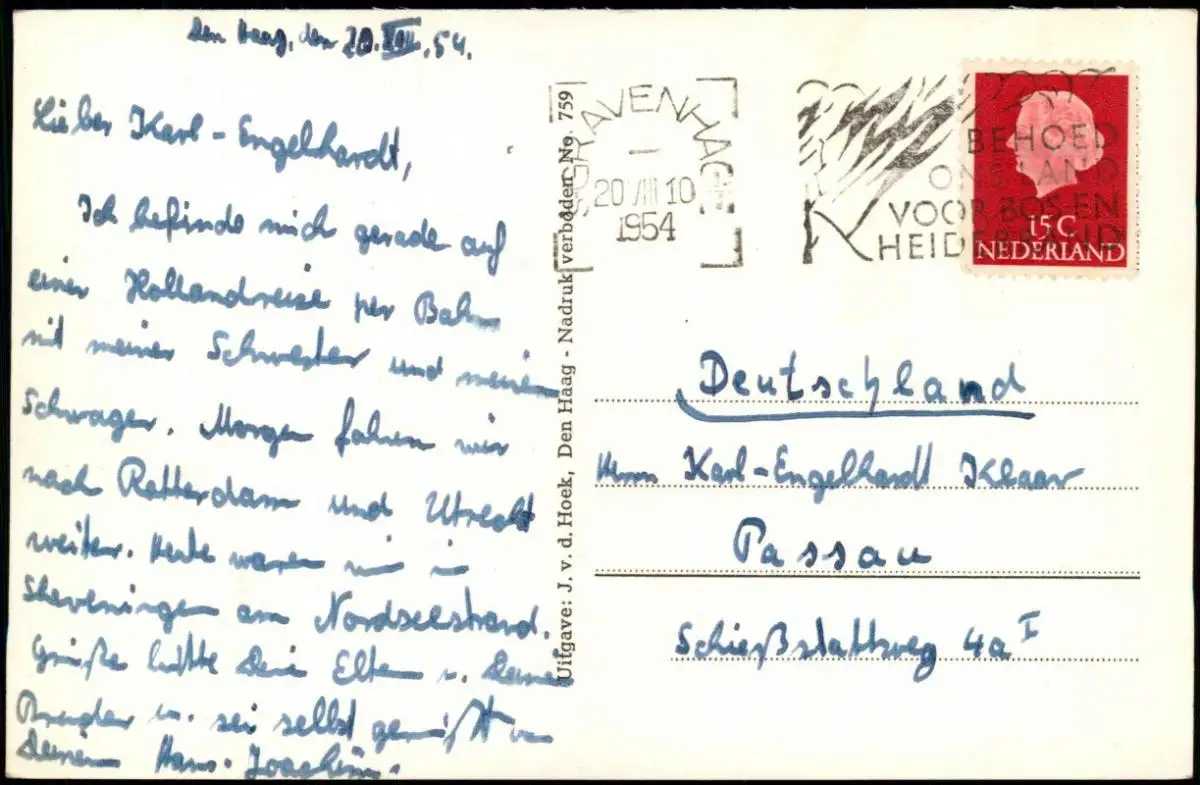 Den Haag, den 20. VIII. 54.
Lieber Karl-Engelhardt,
Ich befinde mich gerade auf
einer Hollandreise per Bahn
mit meiner Schwester und meinem
Schwager. Morgen fahren wir
nach Rotterdam und Utrecht
weiter. Heute waren wir in
Sheveningen am Nordseestrand.
Grüße bitte Deine Eltern u. Deinen
Bruder u. sei selbst gegrüßt von
Deinem Hans-Joachim.
Uitgave: J. v. d. Hoek, Den Haag - Nadruk verboden No. 759
'S GRAVENHAGE
20 VIII 10
1954
BEHOED
ONS LAND
VOOR BOS-EN
HEIDEBRAND
15C
NEDERLAND
Deutschland
Herrn Karl-Engelhardt Klaar
Passau
Schießstattweg 4a I